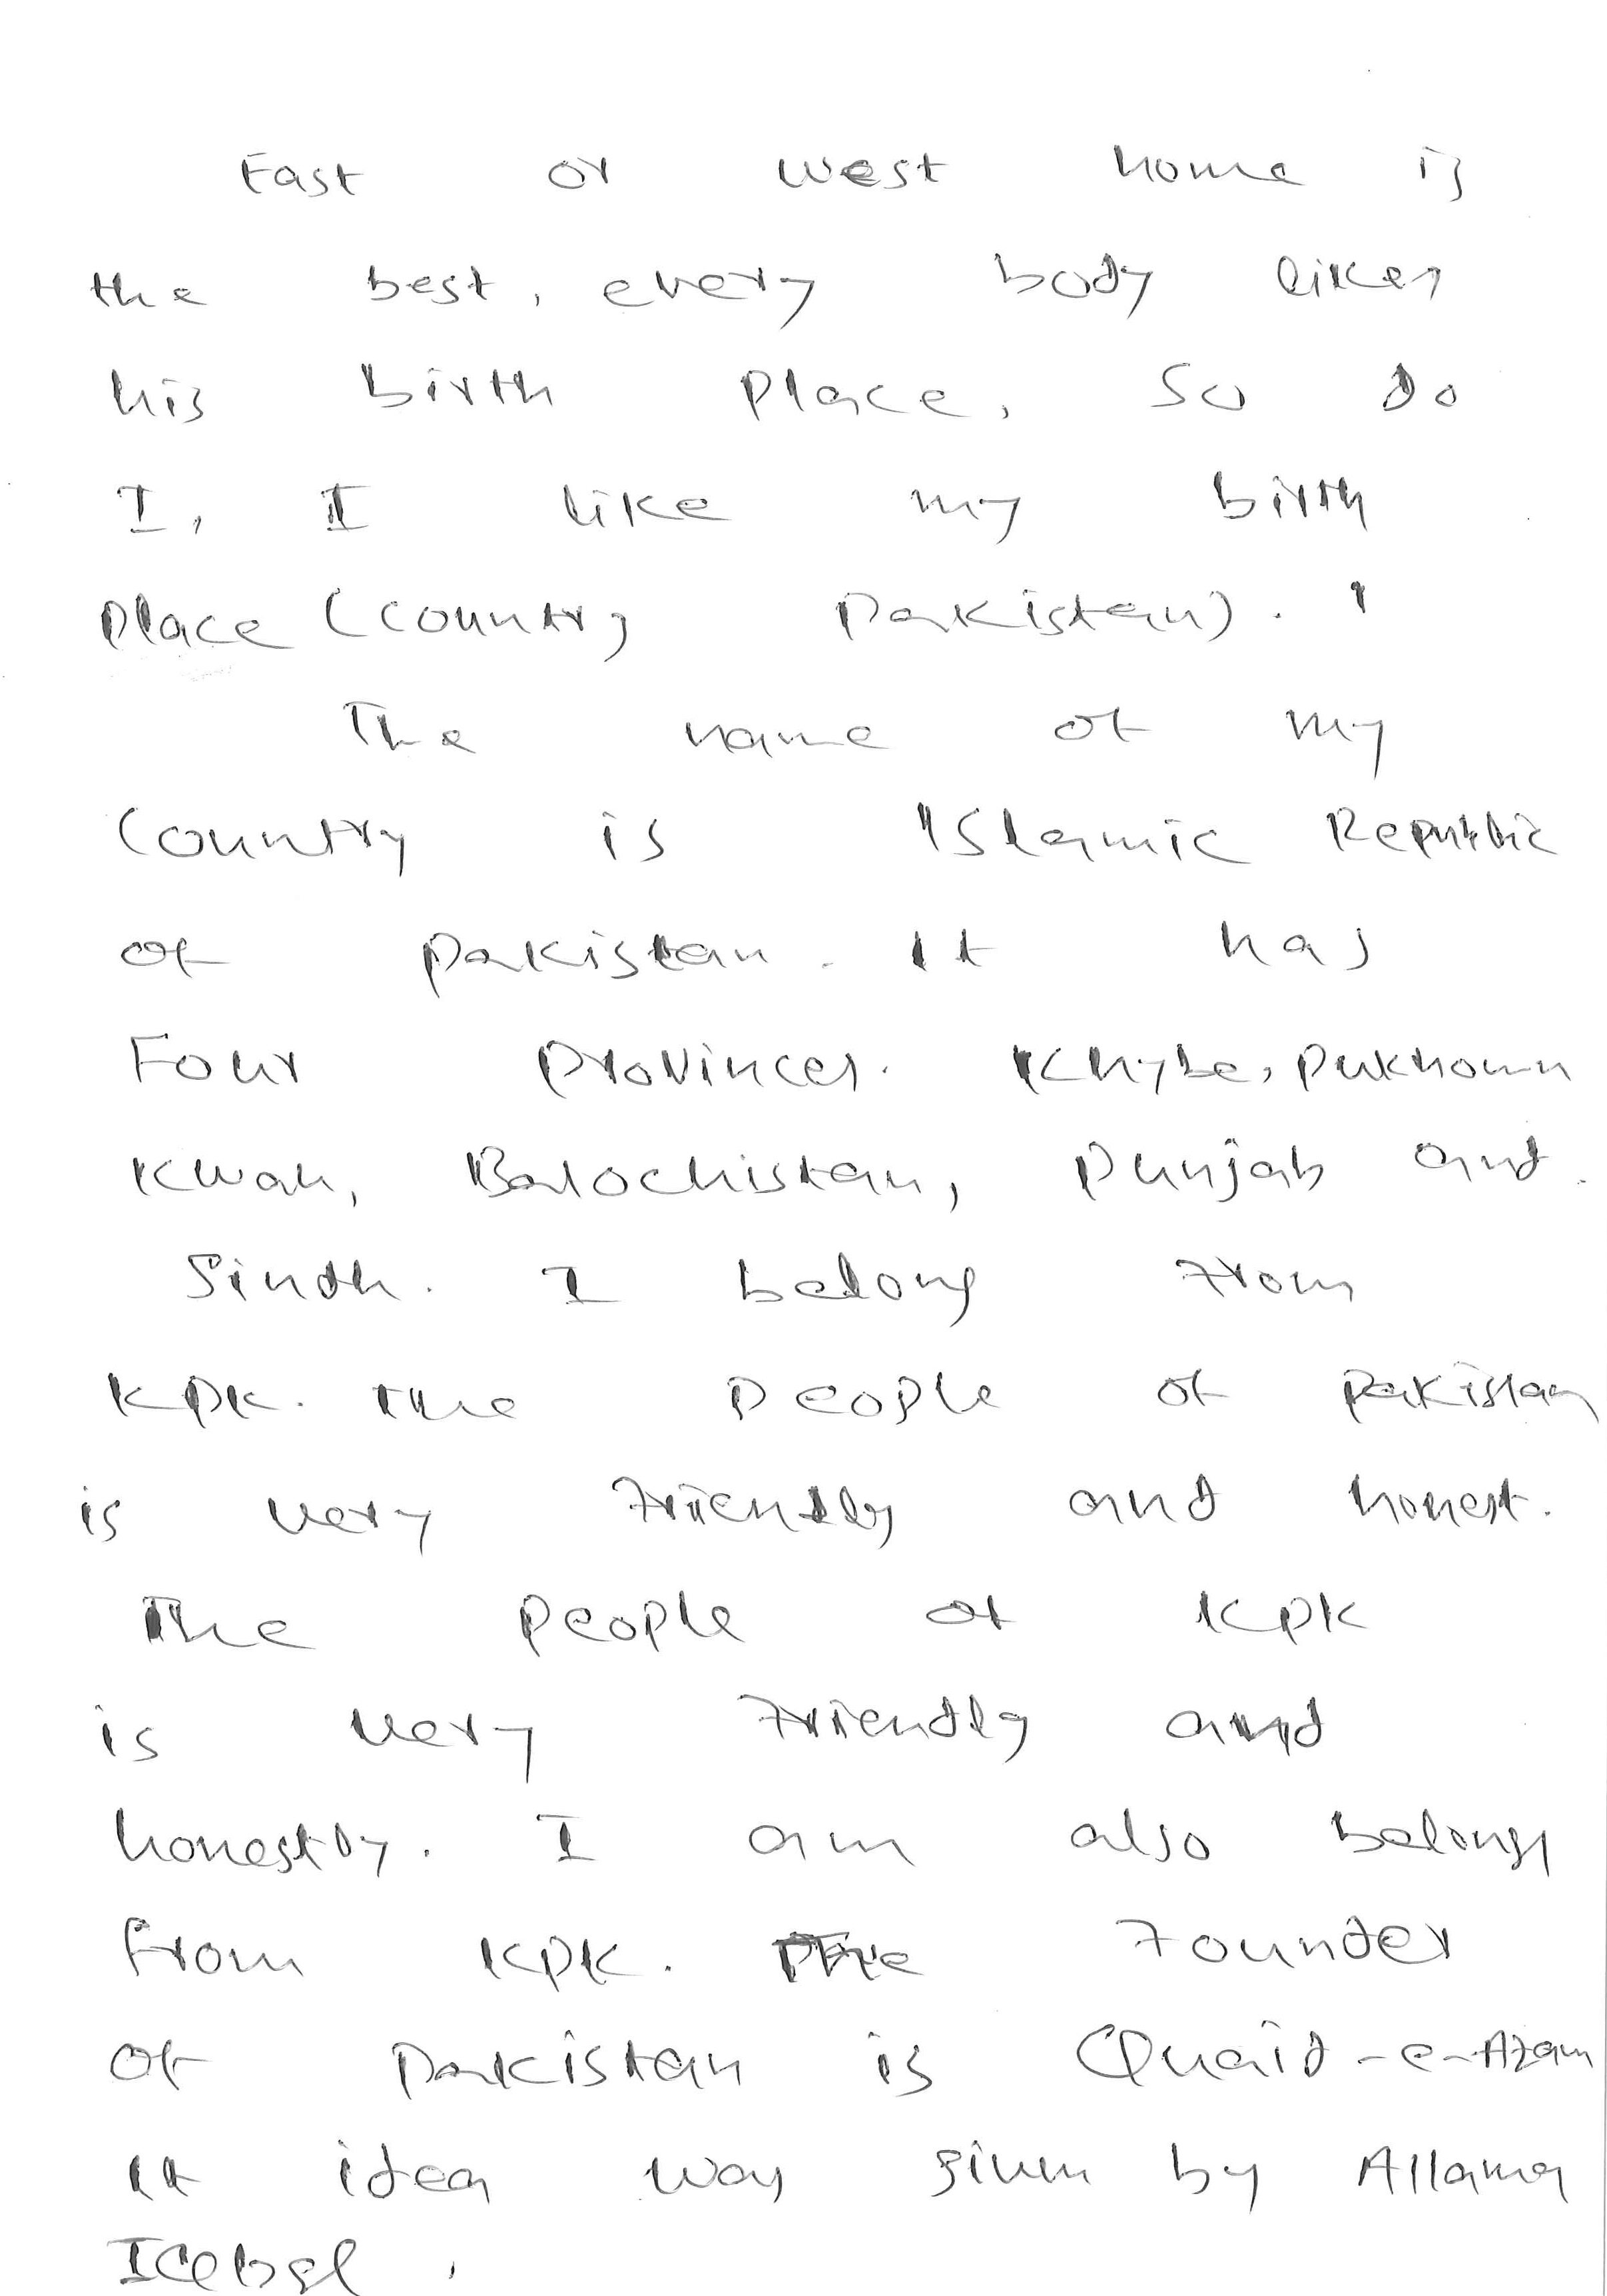 East or west home is
the best, every body likes
his birth place, so do
I, I like my birth
place (country Pakistan). '
The name of my
Country is "Islamic Republic
of Pakistan. It has
Four provinces. Khybe, Pukhown
Kwah, Balochistan, Punjab and
Sindh. I belong from
KPK. The people of Pakistan
is very friendly and honest.
The people of KPK
is very friendly and
honestly. I am also belong
from KPK. The founder
of Pakistan is Quaid-e-Azam
It idea was given by Allama